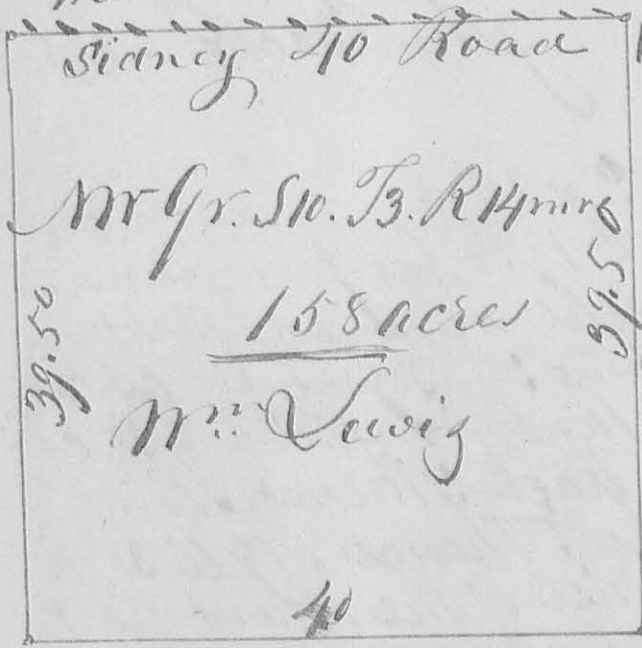 Sidney 40 Road
NW Qr. S10. T3. R14 mrs
158 acres
39.50
39.50
Wm. Lewis
40